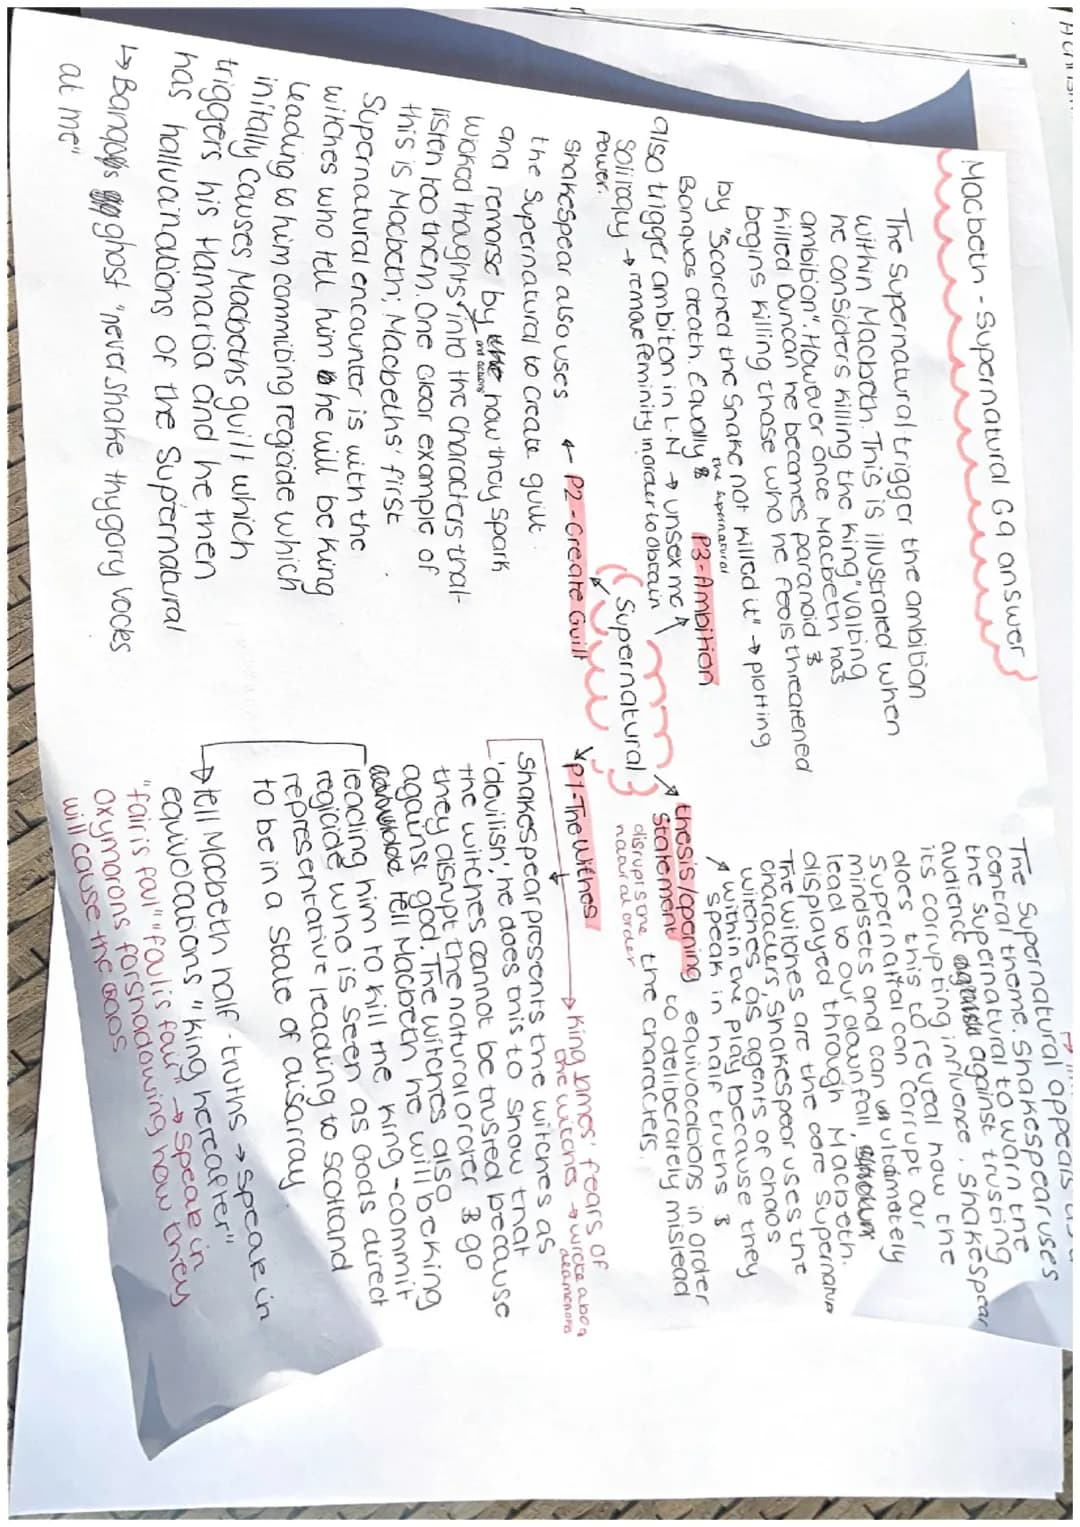 Macbeth - Supernatural G9 answer
The Supernatural appears as a
central theme. Shakespear uses
the Supernatural to warn the
audience against trusting
its corrupting influence. Shakespear
does this to reveal how the
Supernatital can corrupt our
mindsets and can ultámately
lead to our downfall,
displayed through Macbeth.
The witches are the core supernatur
characters, Shakespear uses the
witches as agents of chaos
within the play because they
speak in half truths &
equivocations in order
to deliberately mislead
the characters.
thesis/opening
Statement
disrupts the
natural order
Supernatural
P1-The withes
King James' fears of
the witches → wrote abou
deamenora
Shakespear presents the witches as
'devilish', he does this to show that
the witches cannot be trusted because
they disrupt the natural order & go
against god. The witches also
tell Macbeth he will be king
leading him to kill the king - commit
regicide who is seen as Gods direct
representative leading to scotland
to be in a state of disarray
tell Macbeth half-truths → speak in
equivocations "king hereafter"
"fair is faul" "foul is fair" → Speak in
Oxymorons forshadowing how they
will cause the caos
P2 - Create Guilt
Shakespear also uses
the Supernatural to create guilt
and remorse by how they spark
wicked thoughts and actions into the characters that
listen too them. One clear example of
this is Macbeth; Macbeths' first
Supernatural encounter is with the
witches who tell him he will be king
leading to him commiting regicide which
initally causes Macbeths guilt which
triggers his Hamartia and he then
has halluainations of the Supernatural
↳ Banquos ghost "never shake thy gory locks
at me"
P3 - Ambition
The Supernatural trigger the ambition
within Macbeth. This is illustrated when
he considers killing the king "valting
ambition". However once Macbeth has
killed Duncan he becomes paranoid &
begins killing those who he feels threatened
by "scorched the snake not killed it" → plotting
Banquos death. Equally the supernatural
also trigger ambiton in L.M → unsex me
Soliloquy → remove feminity in order to obtain
Power.